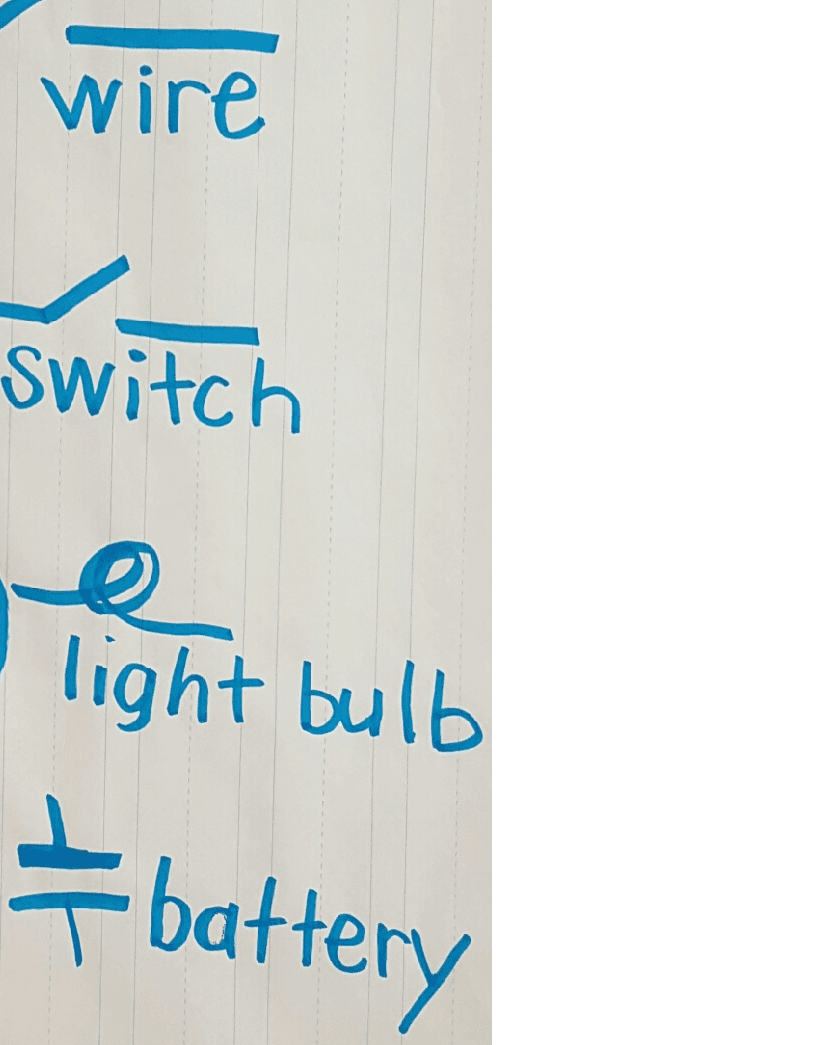 wire
switch
light bulb
battery